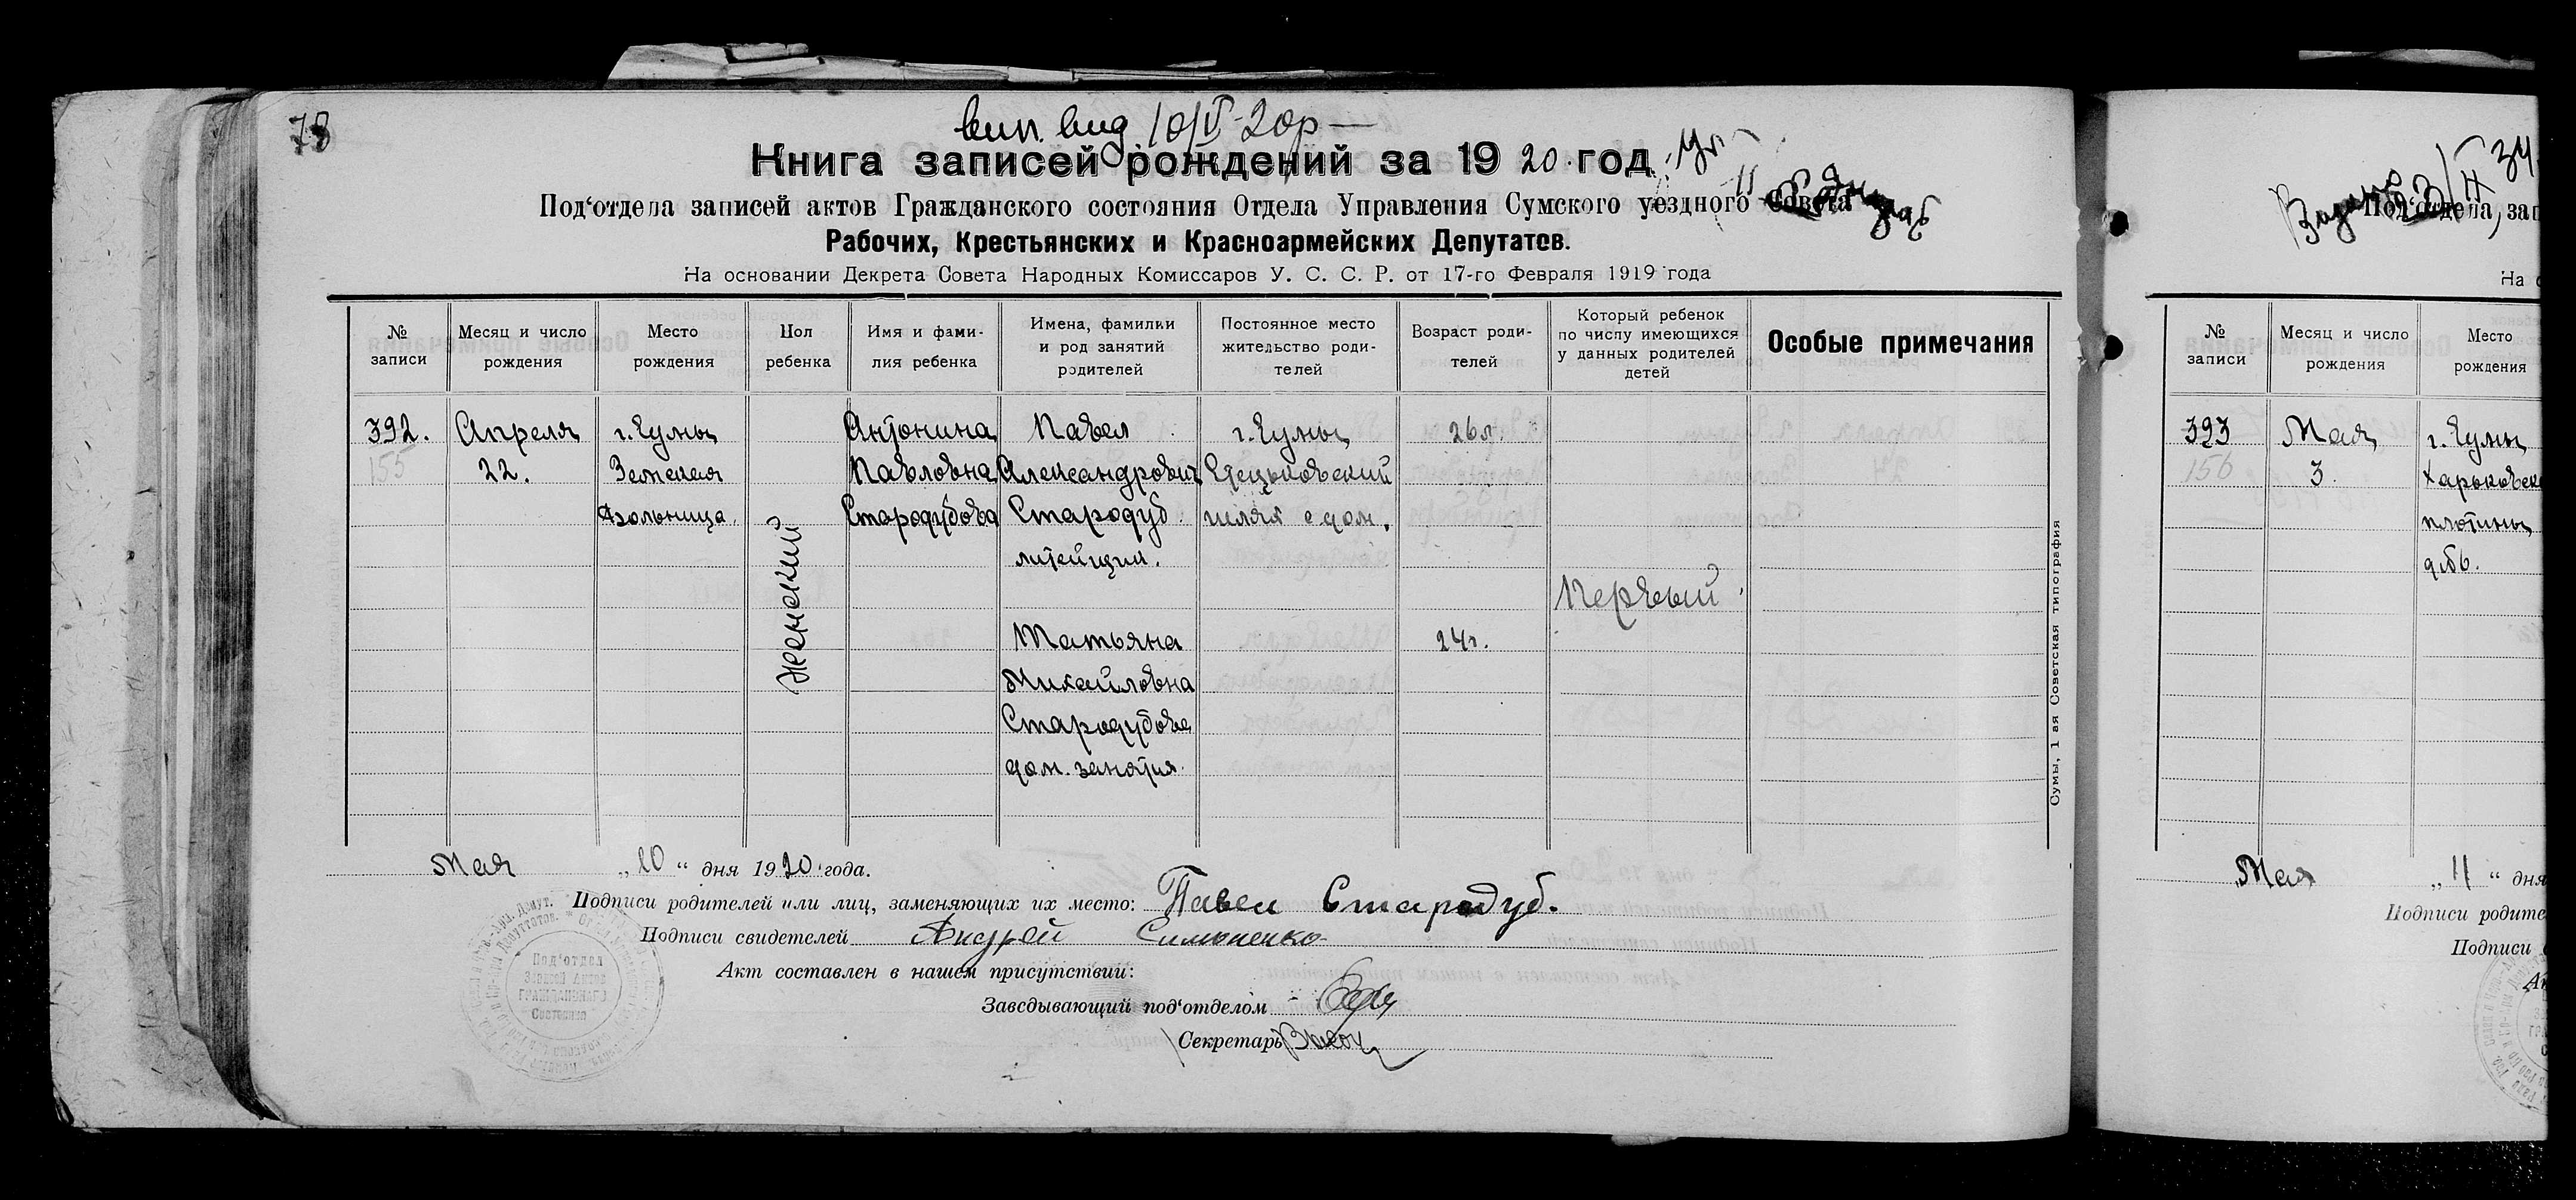 78
вип. вид 10/V-20р —
Книга записей рождений за 1920 год
Под‘отдела записей актов Гражданского состояния Отдела Управления Сумского уездного Совета
Рабочих, Крестьянских и Красноармейских Депутатов.
На основании Декрета Совета Народных Комиссаров У. С. С. Р. от 17-го Февраля 1919 года
№ записи
Месяц и число рождения
Место рождения
Пол ребенка
Имя и фами-
лия ребенка
Имена, фамилии
и род занятий
родителей
Постоянное место
жительство роди-
телей
Возраст роди-
телей
Который ребенок
по числу имеющихся
у данных родителей
детей
Особые примечания
392.
155
Апреля
22.
г. Сумы
Земская
больница.
Женский
Антонина
Павловна
Стародубова
Павел
Александрович
Стародуб
литейщик.
Татьяна
Михайловна
Стародубова
дом. занятия.
г. Сумы
шлях с дом.
26 л.
24 г.
Первый
Сумы, 1 ая Советская типография
Мая „10“ дня 1920 года.
Подписи родителей или лиц, заменяющих их место: Павел Стародуб.
Подписи свидетелей Андрей Симоненко
Акт составлен в нашем присутствии:
Заведывающий под‘отделом
Секретарь
Под‘отдел
Записей Актов
Гражданского
Состояния
Под‘отдела, зап
На о
№
записи
Месяц и число
рождения
Место
рождения
393
156
Мая
3.
г. Сумы
Харьковск
плотины
Мая „11“ дня
Подписи родите
Подписи
Ак